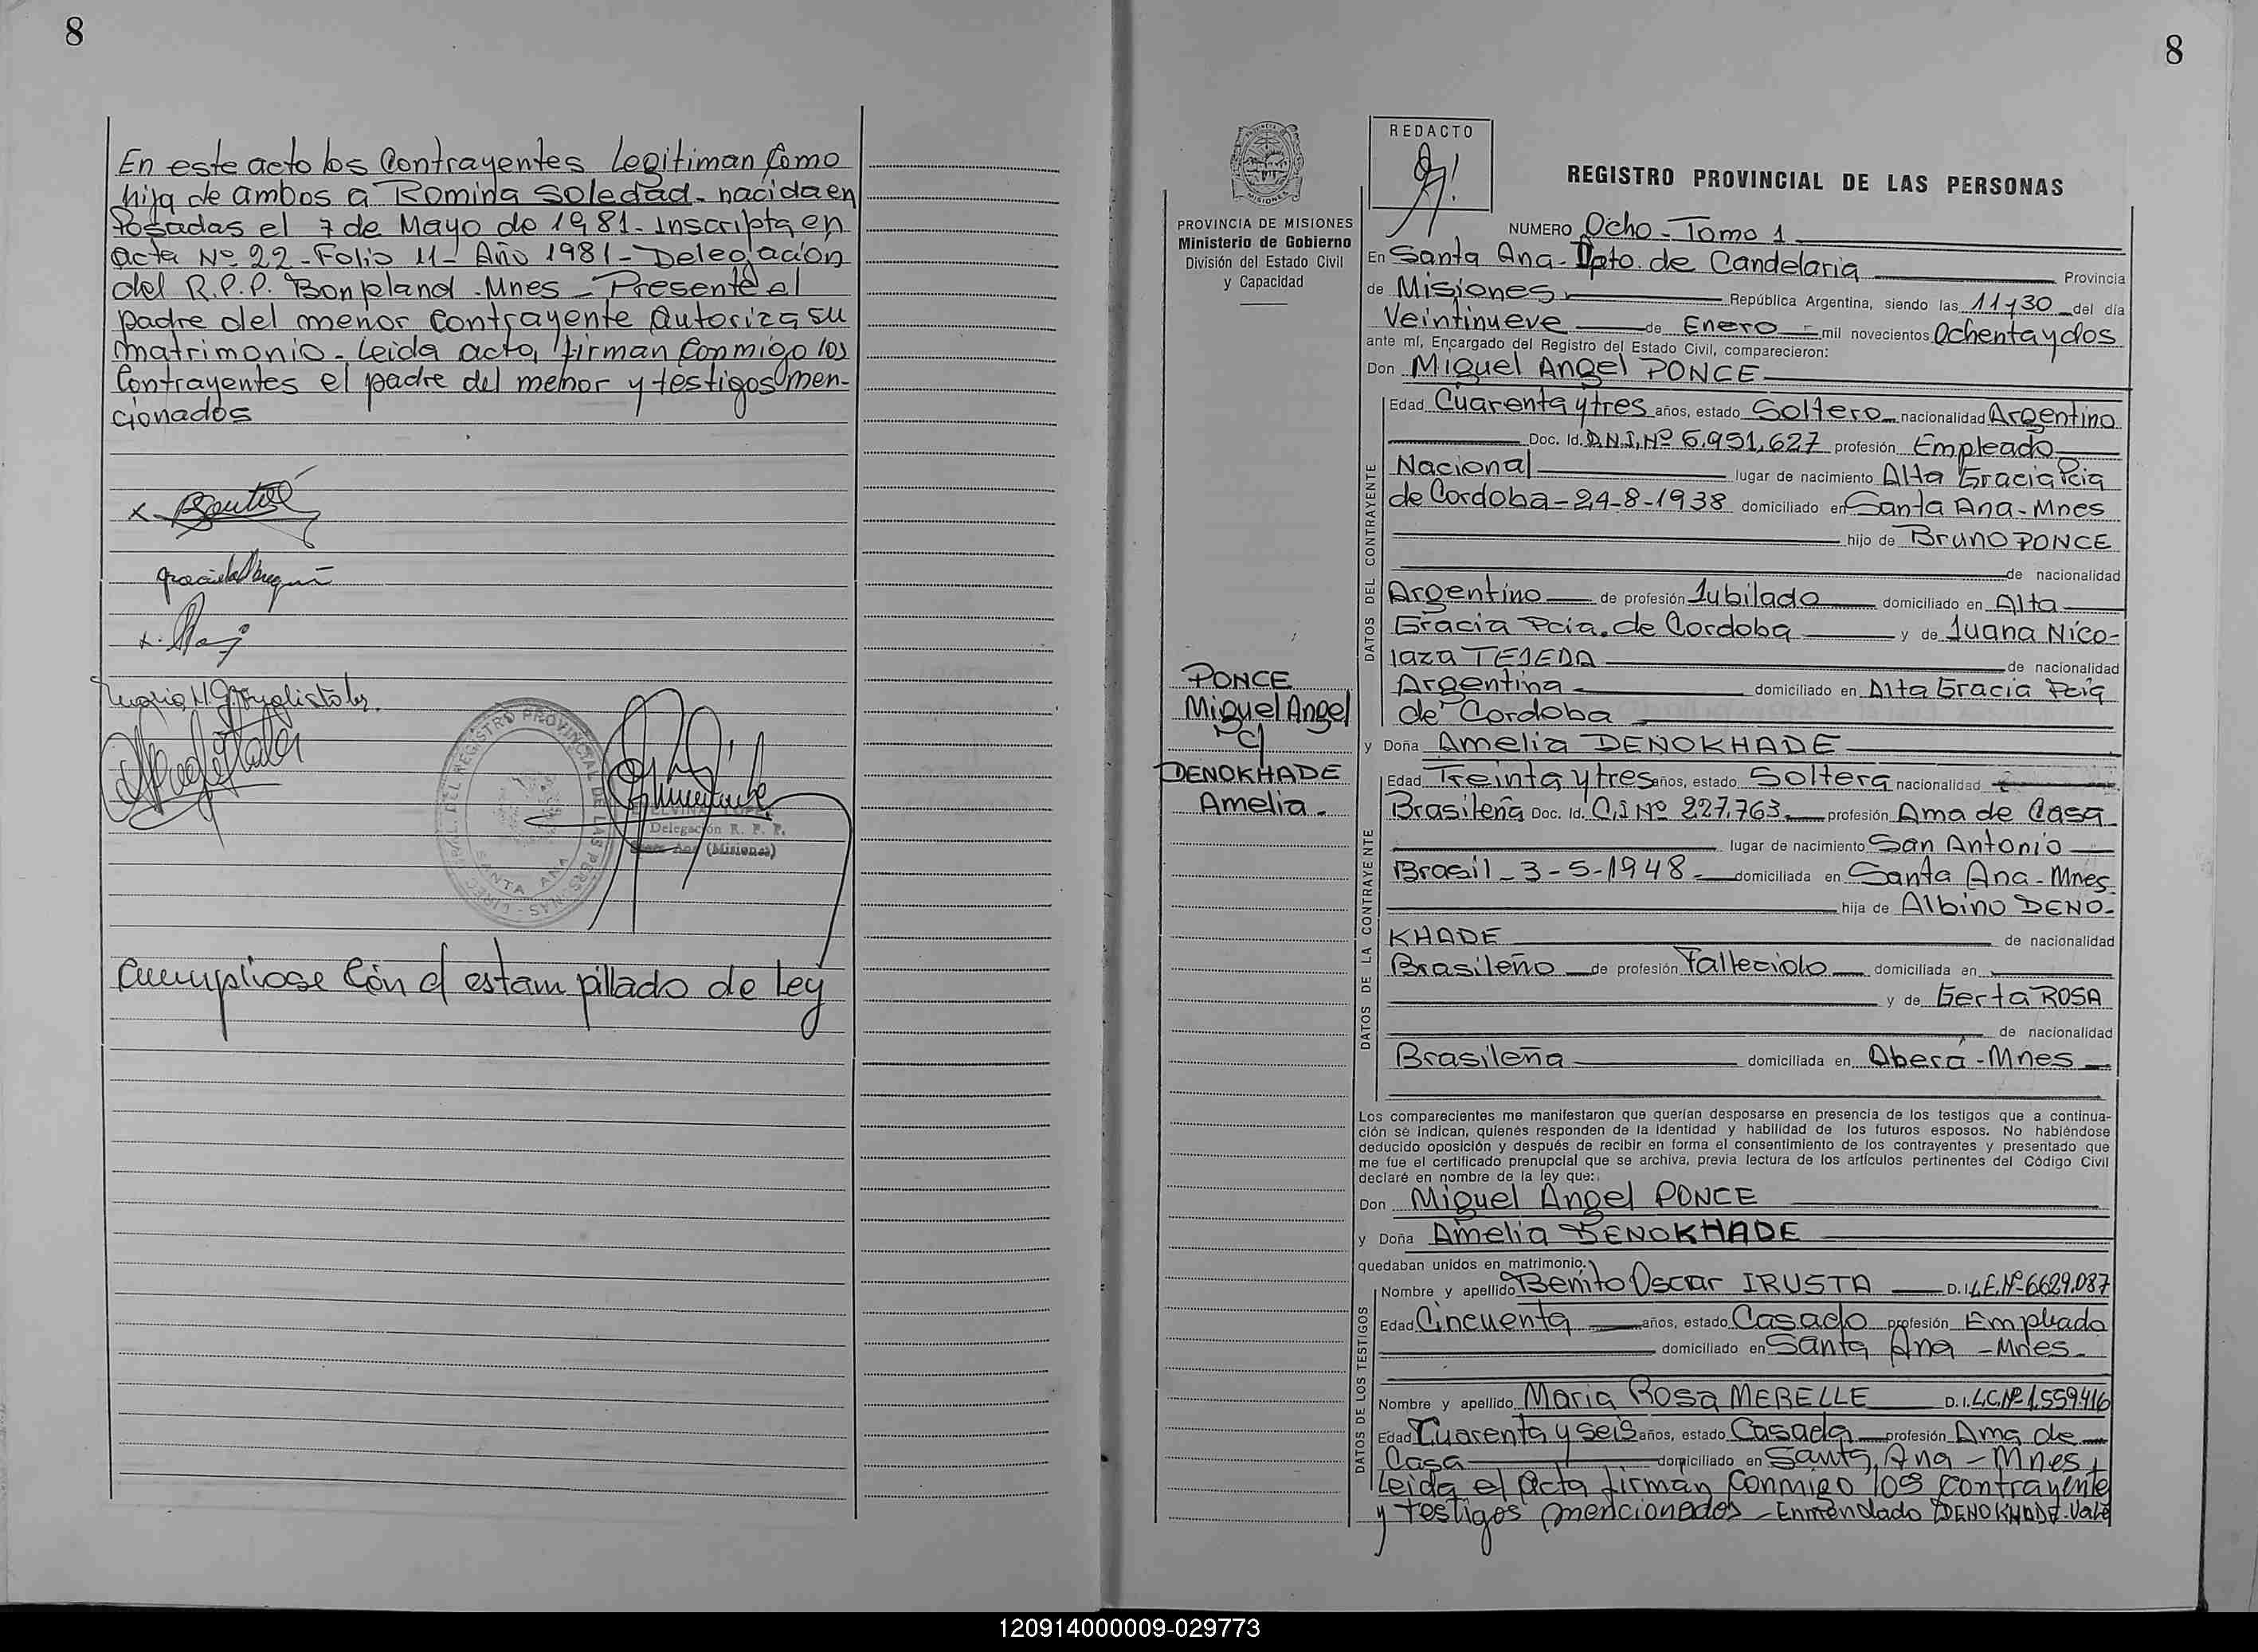 8
En este acto los Contrayentes, Legitiman Como
hija de ambos a Romina Soledad - nacida en
Posadas el 7 de Mayo de 1981 - Inscripta en
acta Nº 22 - Folio 11 - Año 1981 - Delegación
del R.P.P. Bonpland - Mnes - Presente el
padre del menor Contrayente Autoriza su
matrimonio - Leida acta, firman Conmigo los
Contrayentes el padre del menor y testigos men-
cionados
DEL REGISTRO PROVINCIAL DE LAS PERSONAS
SANTA ANA
Delegación R. P. P.
Santa Ana (Misiones)
Cumpliose Con el estampillado de Ley
8
PROVINCIA DE MISIONES
Ministerio de Gobierno
División del Estado Civil
y Capacidad
PONCE
Miguel Angel
c/
DENOKHADE
Amelia.
REDACTO
REGISTRO PROVINCIAL DE LAS PERSONAS
NUMERO Ocho - Tomo 1
En Santa Ana - Dpto. de Candelaria Provincia
de Misiones República Argentina, siendo las 11 y 30 del día
Veintinueve de Enero mil novecientos Ochenta y dos
ante mí, Encargado del Registro del Estado Civil, comparecieron:
Don Miguel Angel PONCE
DATOS DEL CONTRAYENTE
Edad Cuarenta y tres años, estado Soltero nacionalidad Argentino
Doc. Id. D.N.I. Nº 6.951.627 profesión Empleado
Nacional lugar de nacimiento Alta Gracia Pcia
de Cordoba - 24-8-1938 domiciliado en Santa Ana - Mnes
hijo de Bruno PONCE
de nacionalidad
Argentino de profesión Jubilado domiciliado en Alta
Gracia Pcia. de Cordoba y de Juana Nico-
laza TEJEDA de nacionalidad
Argentina domiciliado en Alta Gracia Pcia
de Cordoba
y Doña Amelia DENOKHADE
DATOS DE LA CONTRAYENTE
Edad Treinta y tres años, estado Soltera nacionalidad
Brasileña Doc. Id. C.I Nº 227.763 profesión Ama de Casa
lugar de nacimiento San Antonio
Brasil - 3-5-1948 - domiciliada en Santa Ana - Mnes.
hija de Albino DENO-
KHADE de nacionalidad
Brasileño de profesión Fallecido domiciliada en
y de Gerta ROSA
de nacionalidad
Brasileña domiciliada en Oberá - Mnes
Los comparecientes me manifestaron que querían desposarse en presencia de los testigos que a continua-
ción se indican, quienes responden de la identidad y habilidad de los futuros esposos. No habiéndose
deducido oposición y después de recibir en forma el consentimiento de los contrayentes y presentado que
me fue el certificado prenupcial que se archiva, previa lectura de los artículos pertinentes del Código Civil
declaré en nombre de la ley que:
Don Miguel Angel PONCE
y Doña Amelia DENOKHADE
quedaban unidos en matrimonio.
DATOS DE LOS TESTIGOS
Nombre y apellido Benito Oscar IRUSTA D. I. L.E. Nº 6629.087
Edad Cincuenta años, estado Casado profesión Empleado
domiciliado en Santa Ana - Mnes -
Nombre y apellido Maria Rosa MERELLE D. I. L.C. Nº 1.559.416
Edad Cuarenta y seis años, estado Casada profesión Ama de
Casa domiciliado en Santa Ana - Mnes
Leida el Acta firman Conmigo los Contrayente
y testigos mencionados - Enmendado DENOKHADE. Vale
120914000009-029773